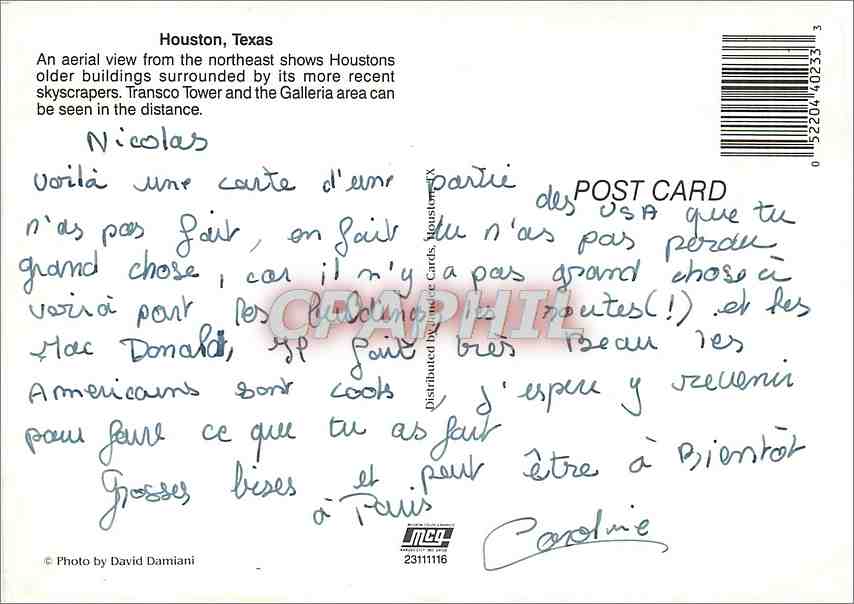 Houston, Texas
An aerial view from the northeast shows Houstons
older buildings surrounded by its more recent
skyscrapers. Transco Tower and the Galleria area can
be seen in the distance.
0 52204 40233 3
POST CARD
Nicolas
voilà une carte d'une partie des USA que tu
n'as pas fait, en fait tu n'as pas perdu
grand chose, car il n'y a pas grand chose à
voir à part les buildings, les routes(!) et les
Mac Donald, Il fait très Beau les
Americains sont cools, j'espère y revenir
pour faire ce que tu as fait
Grosses bises et peut être à Bientôt
à Paris
Caroline
CPAPHIL
Distributed by Cards, Houston, TX
mcg
23111116
© Photo by David Damiani